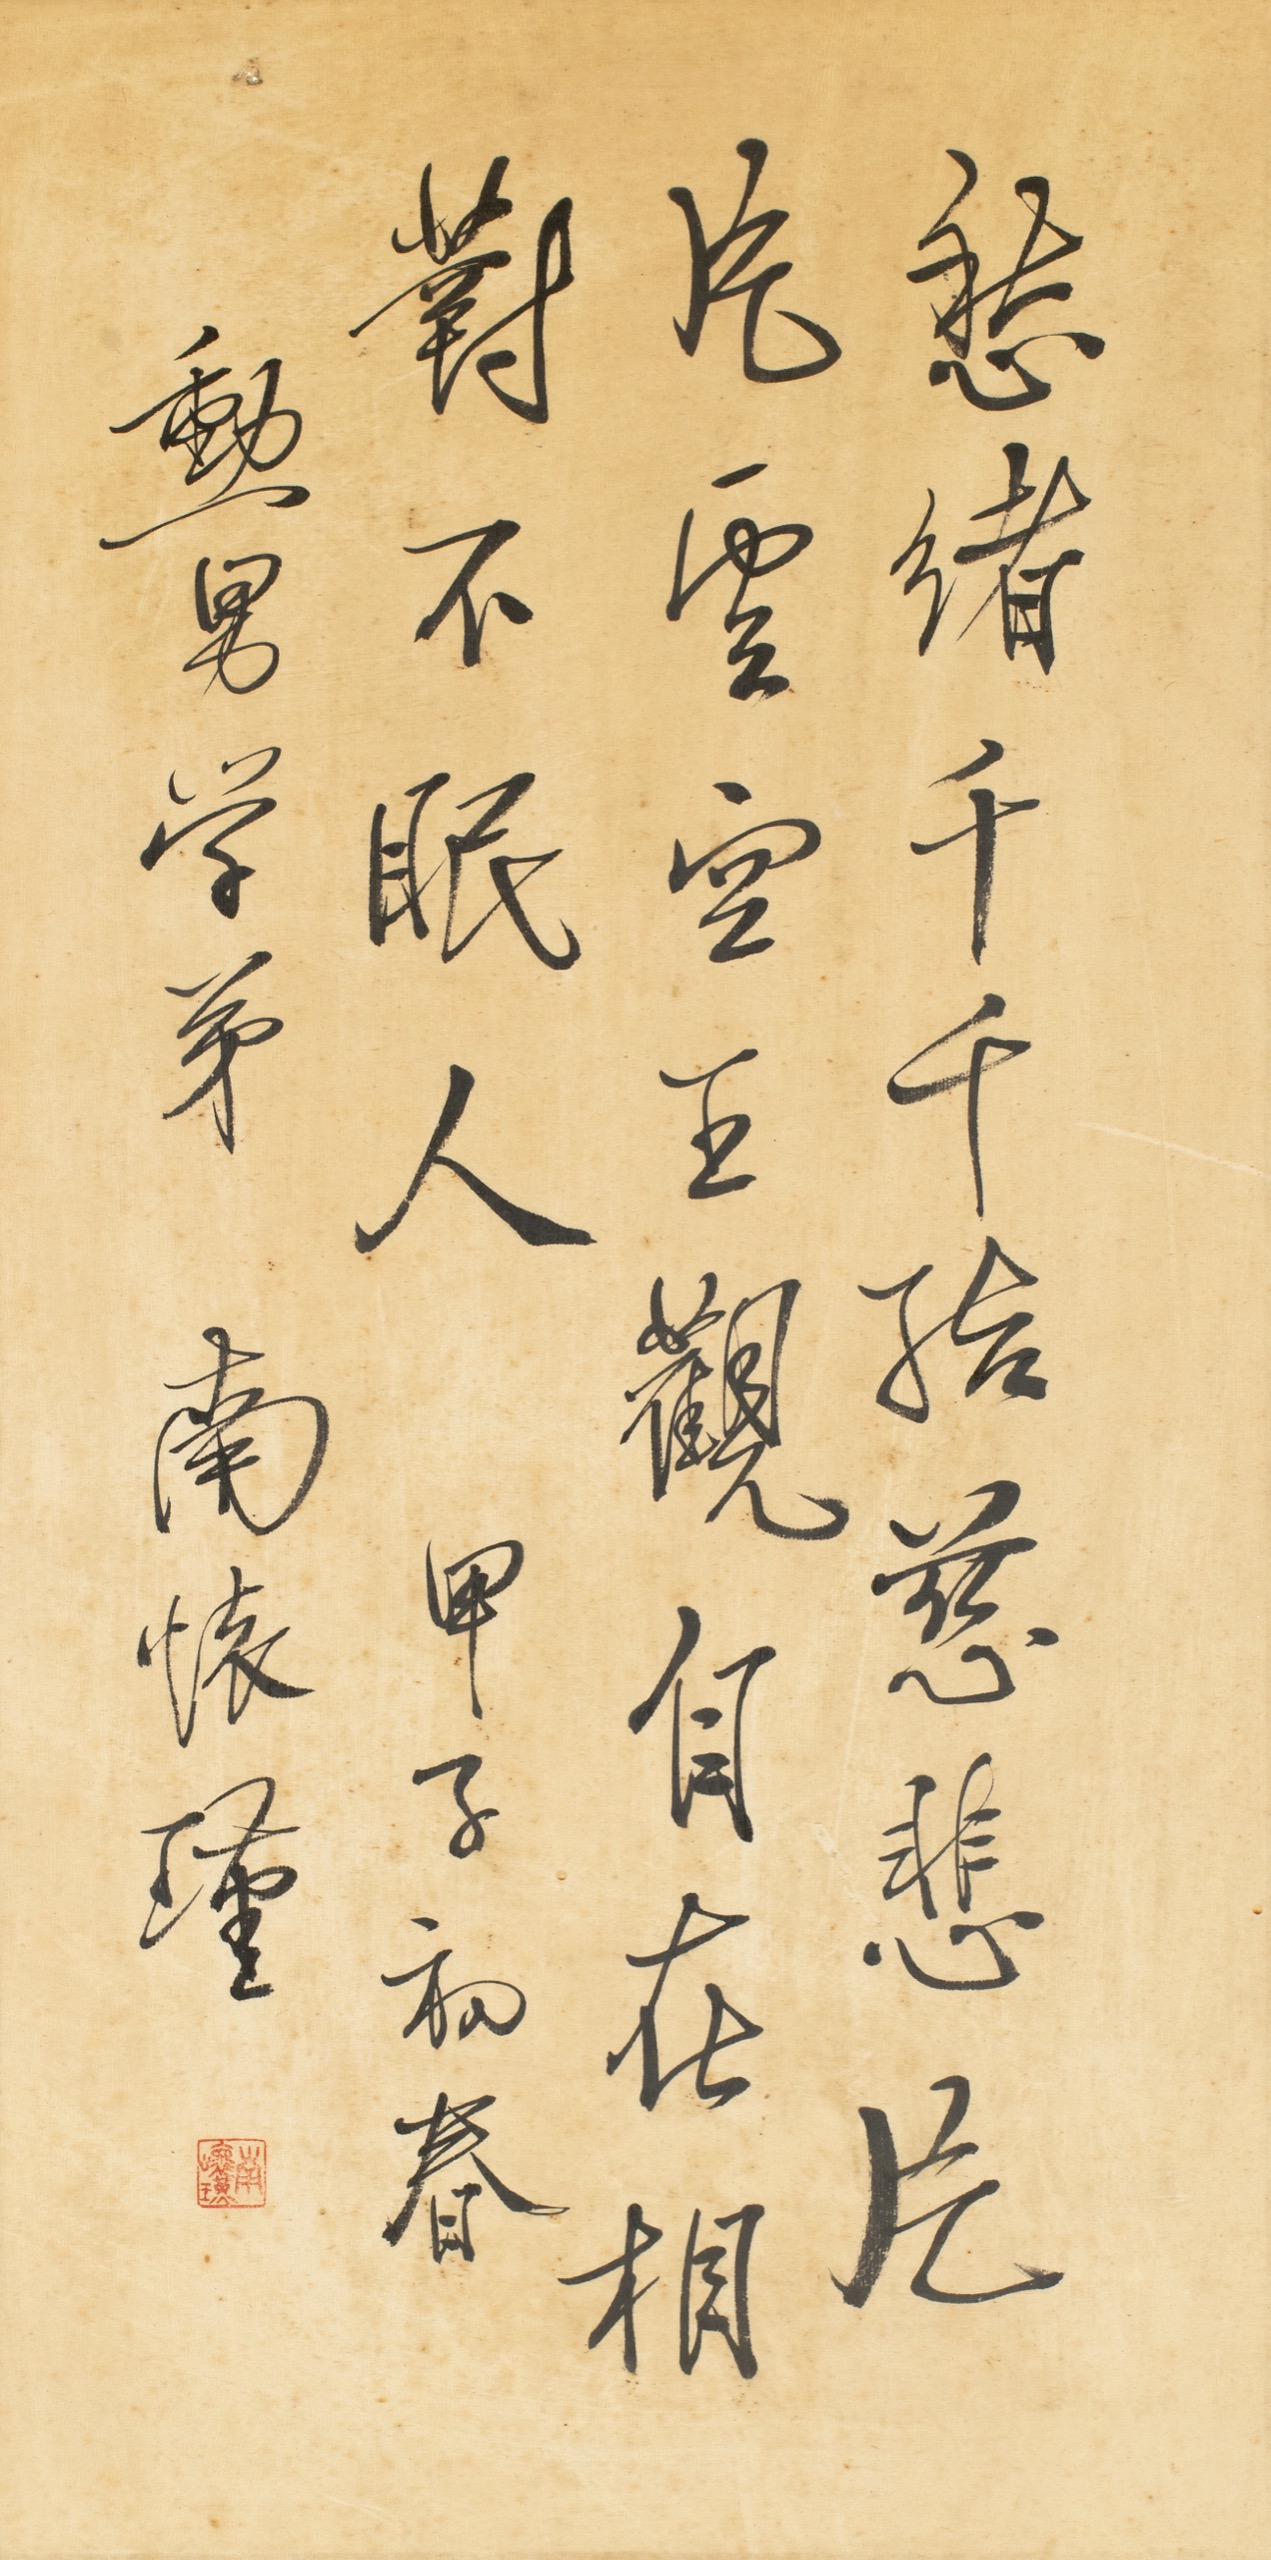 愁緒千千結慈悲片
片雲空王觀自在相
對不眠人 甲子初春
勳男学弟 南懷瑾
南懷瑾